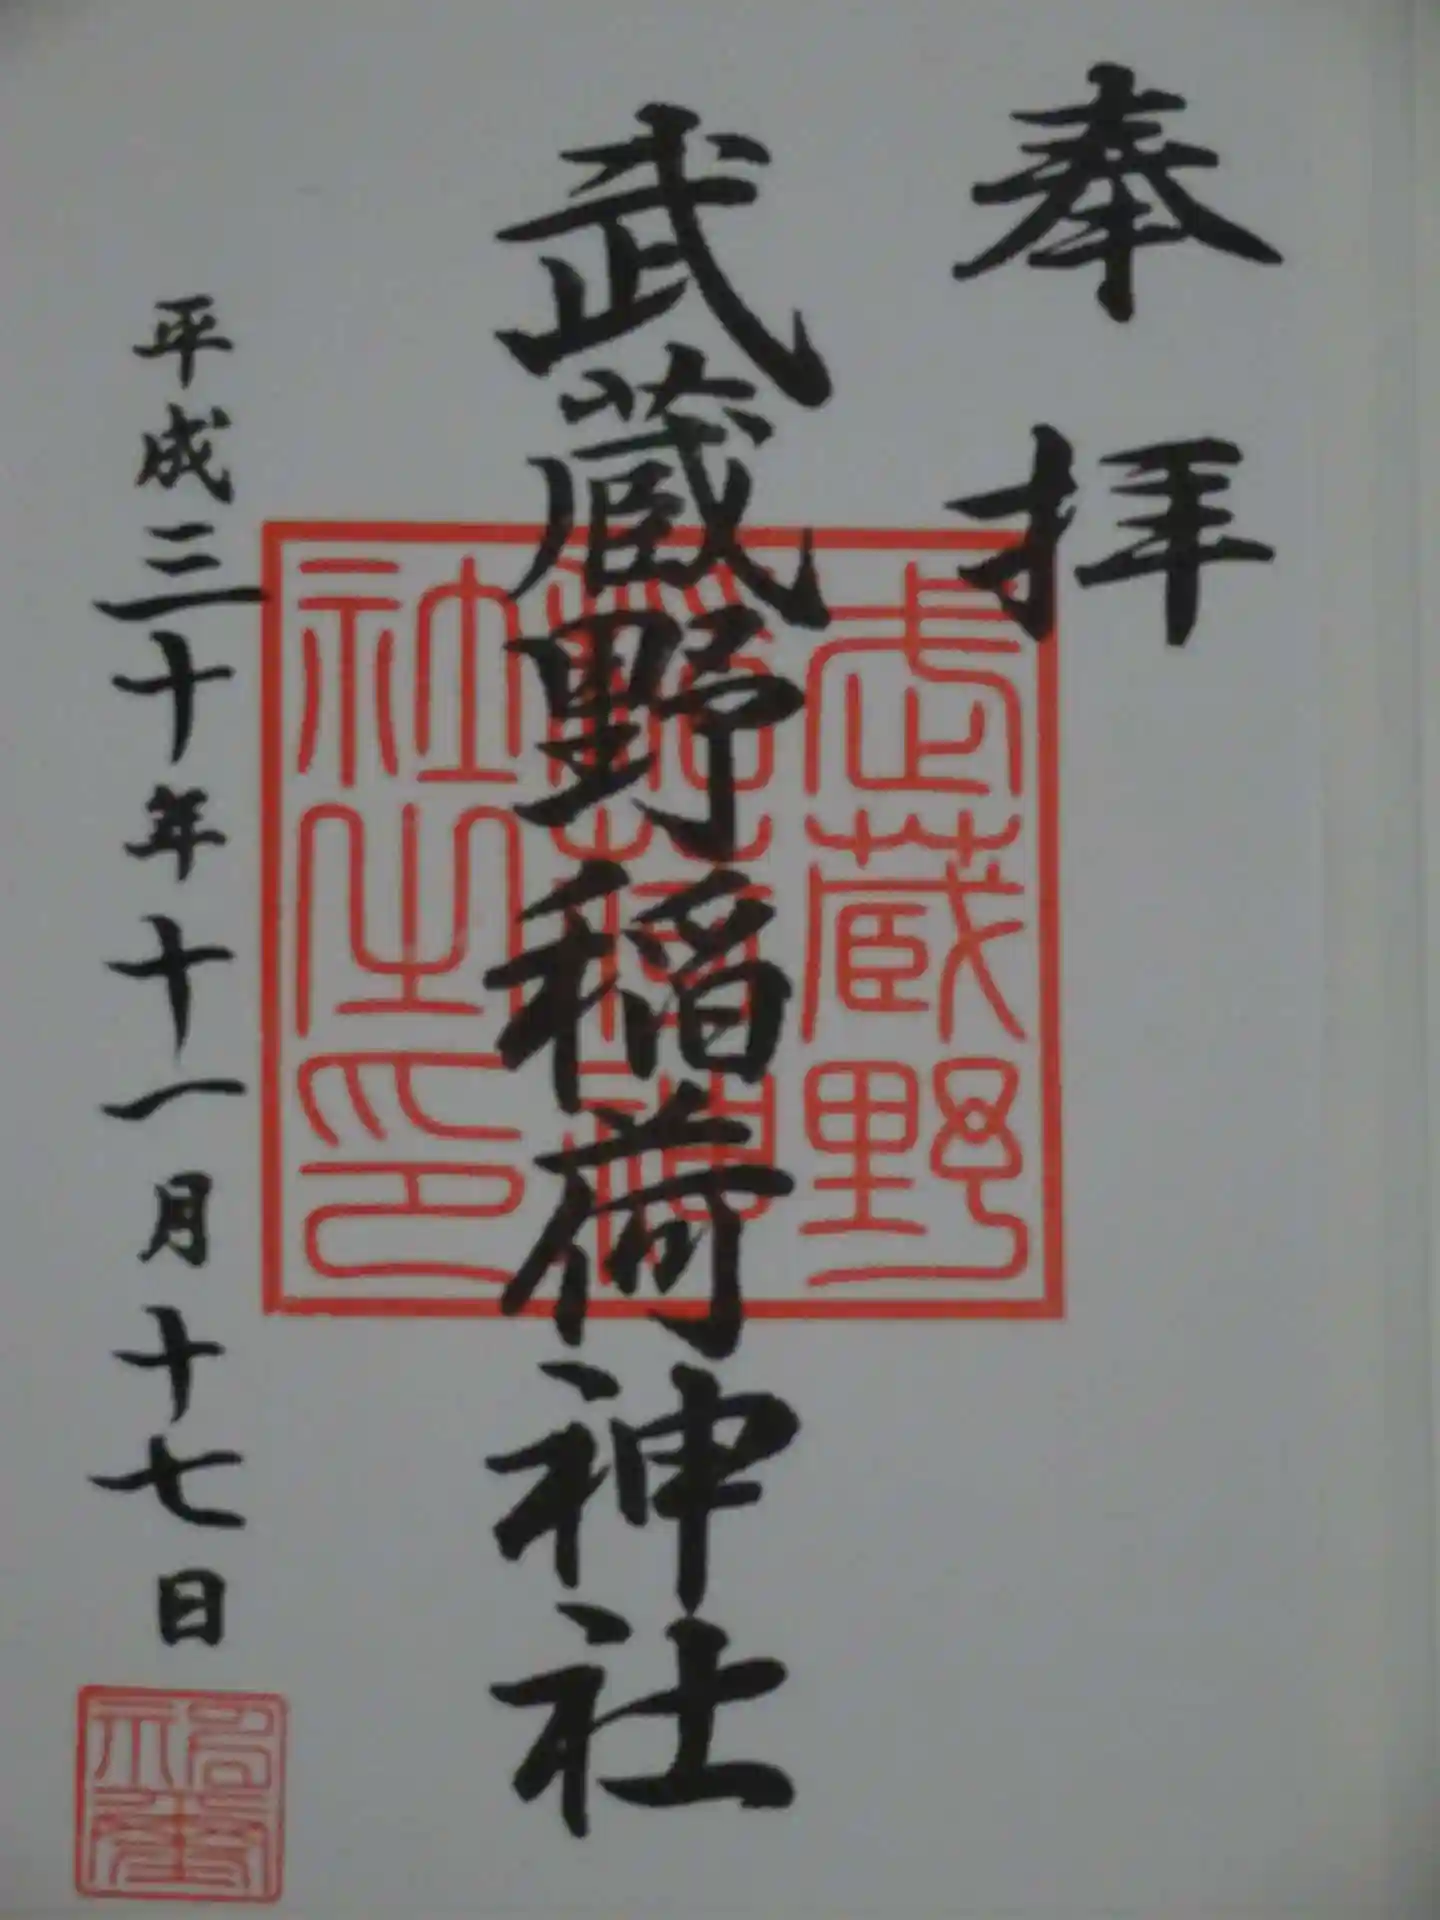 奉拝
武蔵野稲荷神社
武蔵野
稲荷神
社之印
平成三十年十一月十七日